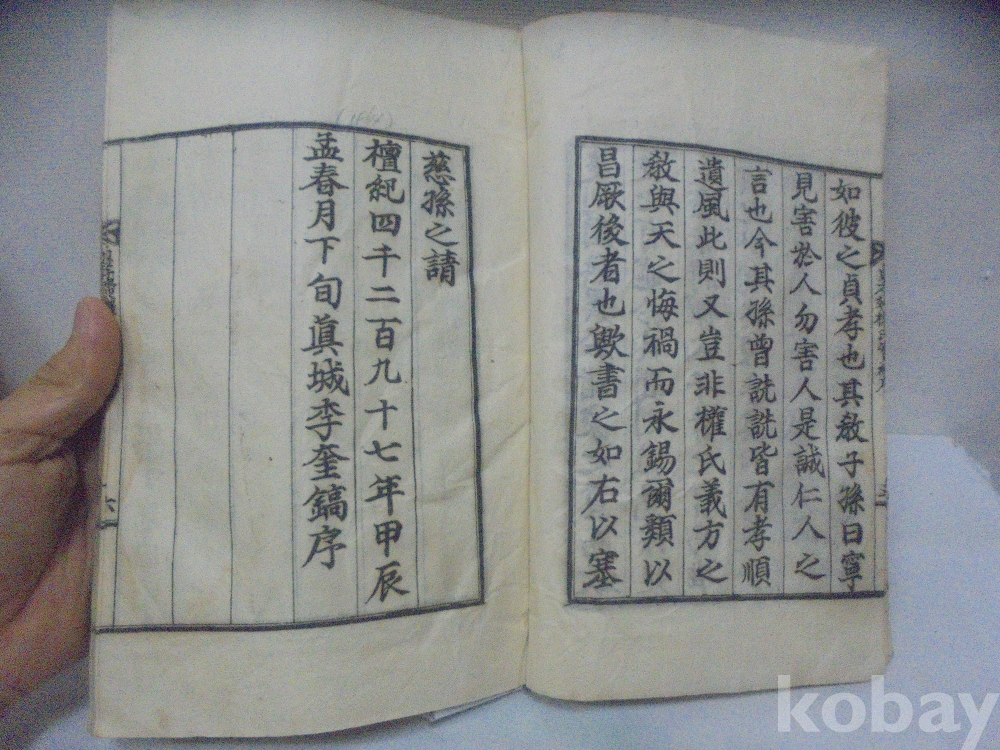 如彼之貞孝也其敎子孫曰寧
見害於人勿害人是誠仁人之
言也今其孫曾詵詵皆有孝順
遺風此則又豈非權氏義方之
敎與天之悔禍而永錫爾類以
昌厥後者也歟書之如右以塞
慈孫之請
檀紀四千二百九十七年甲辰
孟春月下旬眞城李奎鎬序
六
kobay